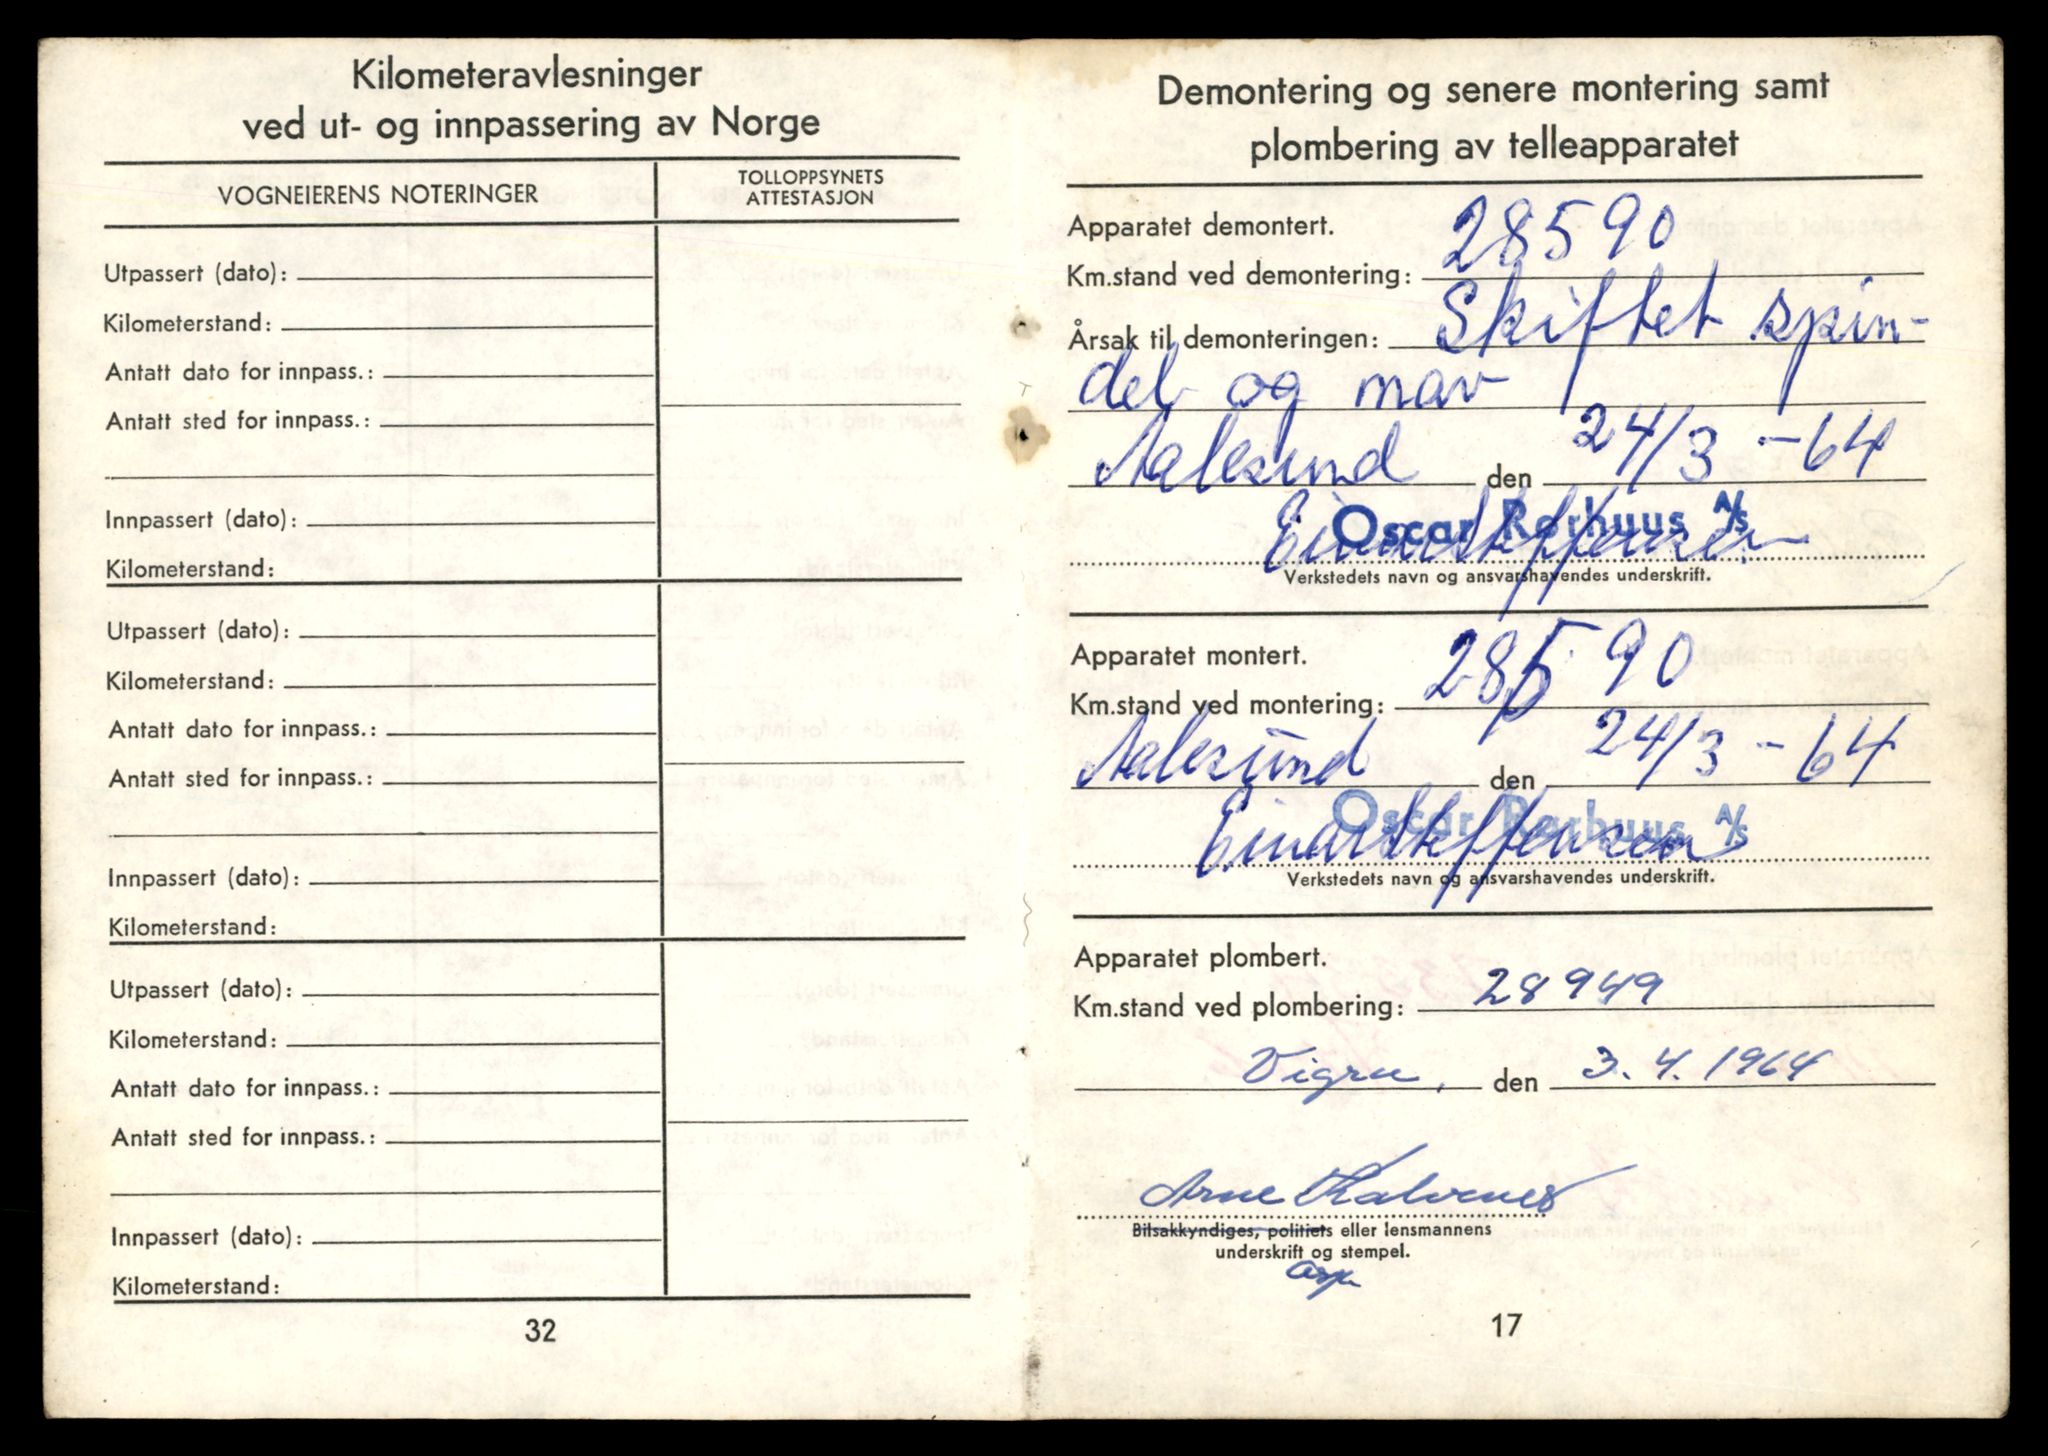 Kilometeravlesninger
ved ut- og innpassering av Norge
VOGNEIERENS NOTERINGER
TOLLOPPSYNETS
ATTESTASJON
Utpassert (dato):
Kilometerstand:
Antatt dato for innpass.:
Antatt sted for innpass.:
Innpassert (dato):
Kilometerstand:
Utpassert (dato):
Kilometerstand:
Antatt dato for innpass.:
Antatt sted for innpass.:
Innpassert (dato):
Kilometerstand:
Utpassert (dato):
Kilometerstand:
Antatt dato for innpass.:
Antatt sted for innpass.:
Innpassert (dato):
Kilometerstand:
32
Demontering og senere montering samt
plombering av telleapparatet
Apparatet demontert.
Km.stand ved demontering: 28590
Årsak til demonteringen: Skiftet spin-
del og nav
Aalesund den 24/3 - 64
Oscar Rørhuus A/S
Einar Steffensen
Verkstedets navn og ansvarshavendes underskrift.
Apparatet montert.
Km.stand ved montering: 28590
Aalesund den 24/3 - 64
Oscar Rørhuus A/S
Einar Steffensen
Verkstedets navn og ansvarshavendes underskrift.
Apparatet plombert.
Km.stand ved plombering: 28949
Vigra, den 3.4.1964
Arne Kalvenes
Bilsakkyndiges, politiets eller lensmannens
underskrift og stempel.
17